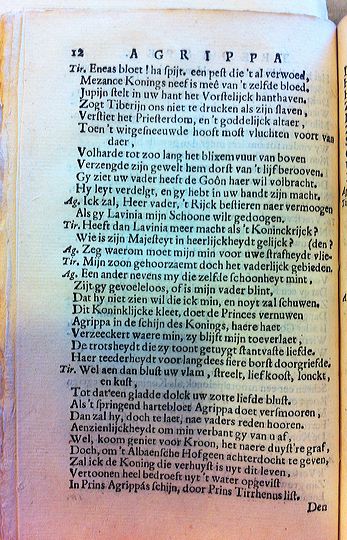 12 AGRIPPA
Tir. Eneas bloet! ha spijt. een pest die 't al verwoed,
Mezance Konings neef is meê van 't zelfde bloed,
Jupijn stelt in uw hant het Vorstelijck hanthaven.
Zogt Tiberijn ons niet te drucken als zijn slaven,
Verstiet het Priesterdom, en 't goddelijck altaer,
Toen 't witgesneeuwde hooft most vluchten voort van
daer,
Volharde tot zoo lang het blixemvuur van boven
Verzengde zijn gewelt hem dorst van 't lijf berooven.
Gy ziet uw vader heeft de Goôn haer wil volbracht.
Hy leyt verdelgt, en gy hebt in uw handt zijn macht.
Ag. Ick zal, Heer vader, 't Rijck bestieren naer vermoogen
Als gy Lavinia mijn Schoone wilt gedoogen.
Tir. Heeft dan Lavinia meer macht als 't Koninckrijck?
Wie is zijn Majesteyt in heerlijckheydt gelijck? (den?
Ag. Zeg waerom moet mijn min voor uwe strafheydt vlie-
Tir. Mijn zoon gehoorzaemt doch het vaderlijck gebieden.
Ag. Een ander nevens my die zelfste schoonheyt mint,
Zijt gy gevoeleloos, of is mijn vader blint,
Dat hy niet zien wil die ick min, en noyt zal schuwen.
Dit Koninklijcke kleet, doet de Princes vernuwen
Agrippa in de schijn des Konings, haere haet
Verzeeckert waere min, zy blijft mijn toeverlaet,
De trotsheydt die zy toont getuygt stantvaste liefde.
Haer teederheydt voor lang des iere borst doorgriefde.
Tir. Wel aen dan blust uw vlam, streelt, liefkoost, lonckt,
en kust,
Tot dat een gladde dolck uw zotte liefde blust.
Als 't springend hartebloet Agrippa doet versmooren,
Dan zal hy, doch te laet, nae vaders reden hooren.
Aenzienlijckheydt om min verbant gy van u af,
Wel, koom geniet voor Kroon, het naere duyst're graf,
Doch, om 't Albaensche Hof geen achterdocht te geven,
Zal ick de Koning die verhuyst is uyt dit leven,
Vertoonen heel bedroeft nyt 't water opgevist
In Prins Agrippás schijn, door Prins Tirrhenus list.
Den